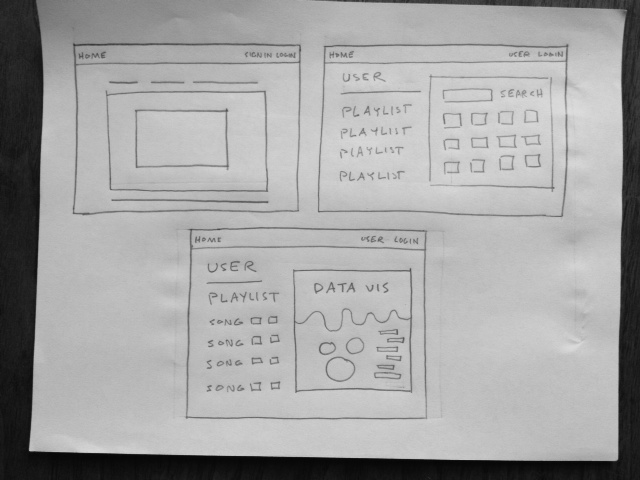 HOME SIGNIN LOGIN
HOME USER LOGIN
USER
PLAYLIST
PLAYLIST
PLAYLIST
PLAYLIST
SEARCH
HOME USER LOGIN
USER
PLAYLIST
SONG
SONG
SONG
SONG
DATA VIS